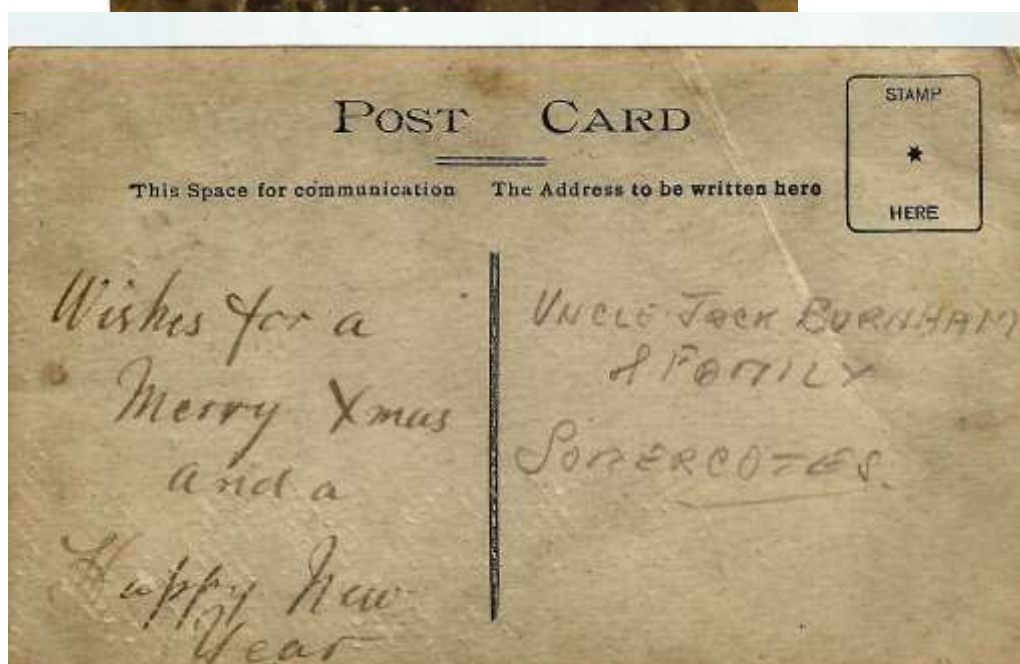 POST CARD
STAMP
HERE
This Space for communication
The Address to be written here
Wishes for a
Merry Xmas
and a
Happy New
Year
UNCLE JACK BURNHAM
& FAMILY
SOMERCOTES.